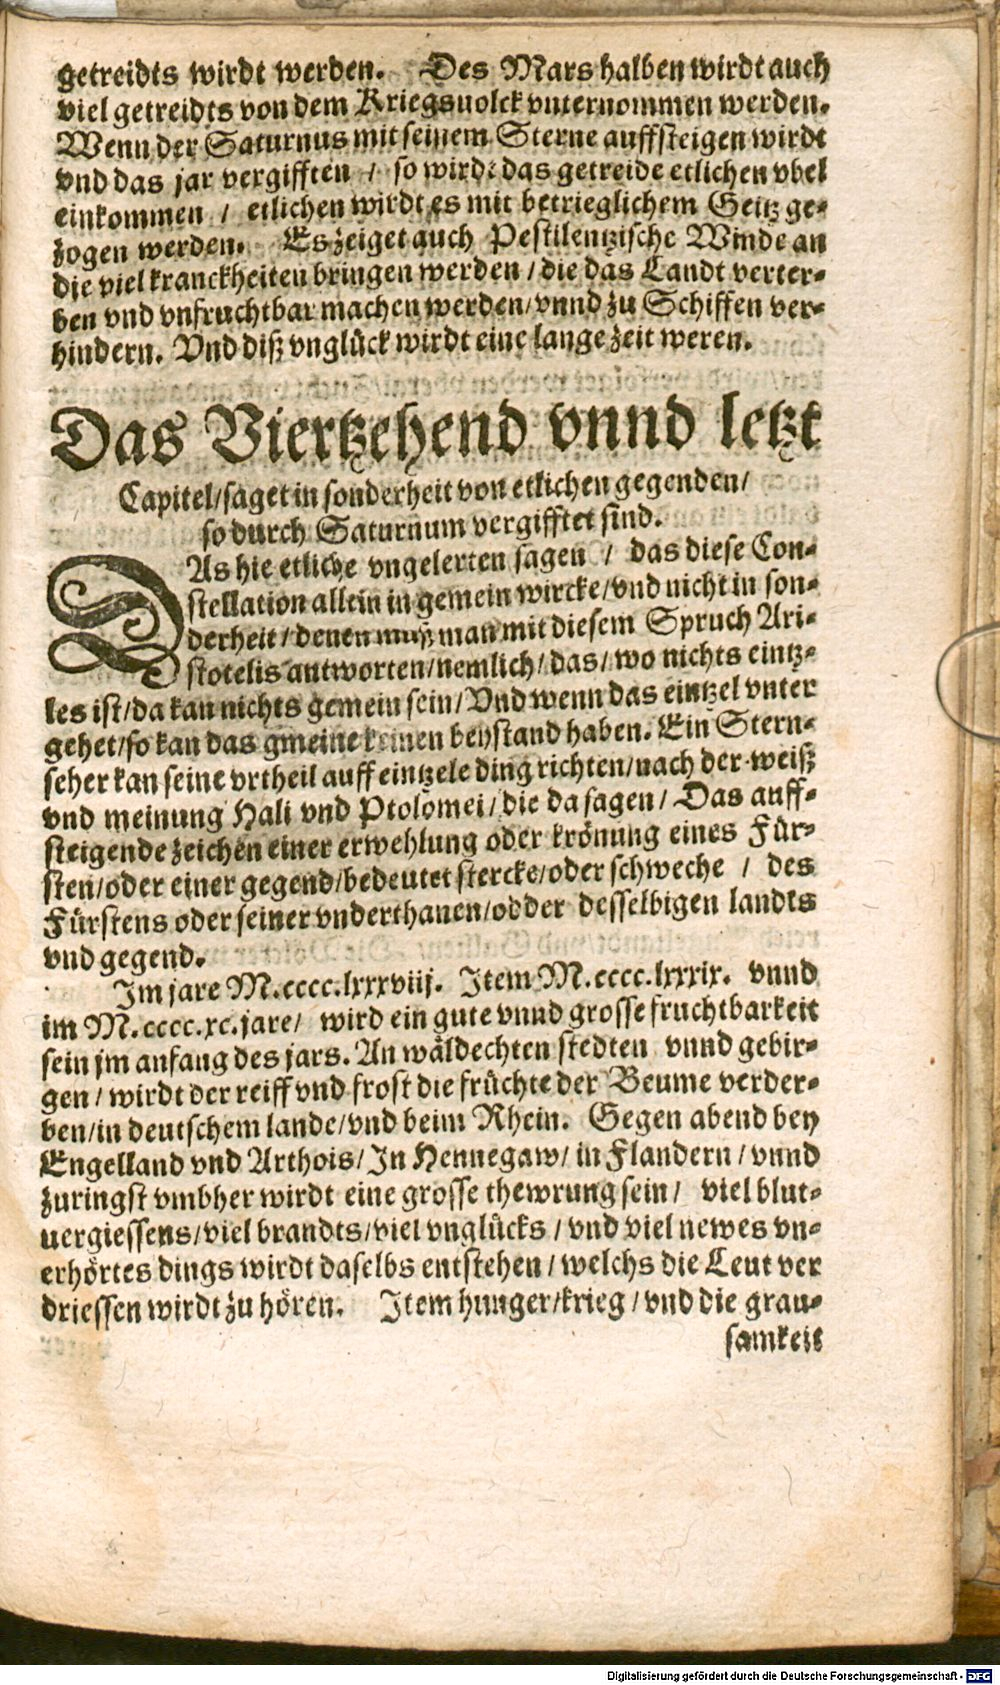 getreidts wirdt werden. Des Mars halben wirdt auch
viel getreidts von dem Kriegsuolck vnternommen werden.
Wenn der Saturnus mit seinem Sterne auffsteigen wirdt
vnd das jar vergifften / so wirdt das getreide etlichen vbel
einkommen / etlichen wirdt es mit betrieglichem Geitz ge-
zogen werden. Es zeiget auch Pestilentzische Winde an
die viel kranckheiten bringen werden / die das Landt verter-
ben vnd vnfruchtbar machen werden / vnnd zu Schiffen ver-
hindern. Vnd diß vnglück wirdt eine lange zeit weren.
Das Viertzehend vnnd letzt
Capitel / saget in sonderheit von etlichen gegenden /
so durch Saturnum vergifftet sind.
DAs hie etliche vngelerten sagen / das diese Con-
stellation allein in gemein wircke / vnd nicht in son-
derheit / denen muß man mit diesem Spruch Ari-
stotelis antworten / nemlich / das / wo nichts eintz-
les ist / da kan nichts gemein sein / Vnd wenn das eintzel vnter
gehet / so kan das gmeine keinen beystand haben. Ein Stern-
seher kan seine vrtheil auff eintzele ding richten / nach der weiß
vnd meinung Hali vnd Ptolomei / die da sagen / Das auff-
steigende zeichen einer erwehlung oder krönung eines Für-
sten / oder einer gegend / bedeutet stercke / oder schweche / des
Fürstens oder seiner vnderthanen / odder desselbigen landts
vnd gegend.
Im jare M.cccc.lxxxviij. Item M.cccc.lxxxix. vnnd
im M.cccc.xc. jare / wird ein gute vnnd grosse fruchtbarkeit
sein jm anfang des jars. An wäldechten stedten vnnd gebir-
gen / wirdt der reiff vnd frost die früchte der Beume verder-
ben / in deutschem lande / vnd beim Rhein. Gegen abend bey
Engelland vnd Arthois / In Hennegaw / in Flandern / vnnd
zuringst vmbher wirdt eine grosse thewrung sein / viel blut-
uergiessens / viel brandts / viel vnglücks / vnd viel newes vn-
erhörtes dings wirdt daselbs entstehen / welchs die Leut ver
driessen wirdt zu hören. Item hunger / krieg / vnd die grau-
samkeit
Digitalisierung gefördert durch die Deutsche Forschungsgemeinschaft - DFG